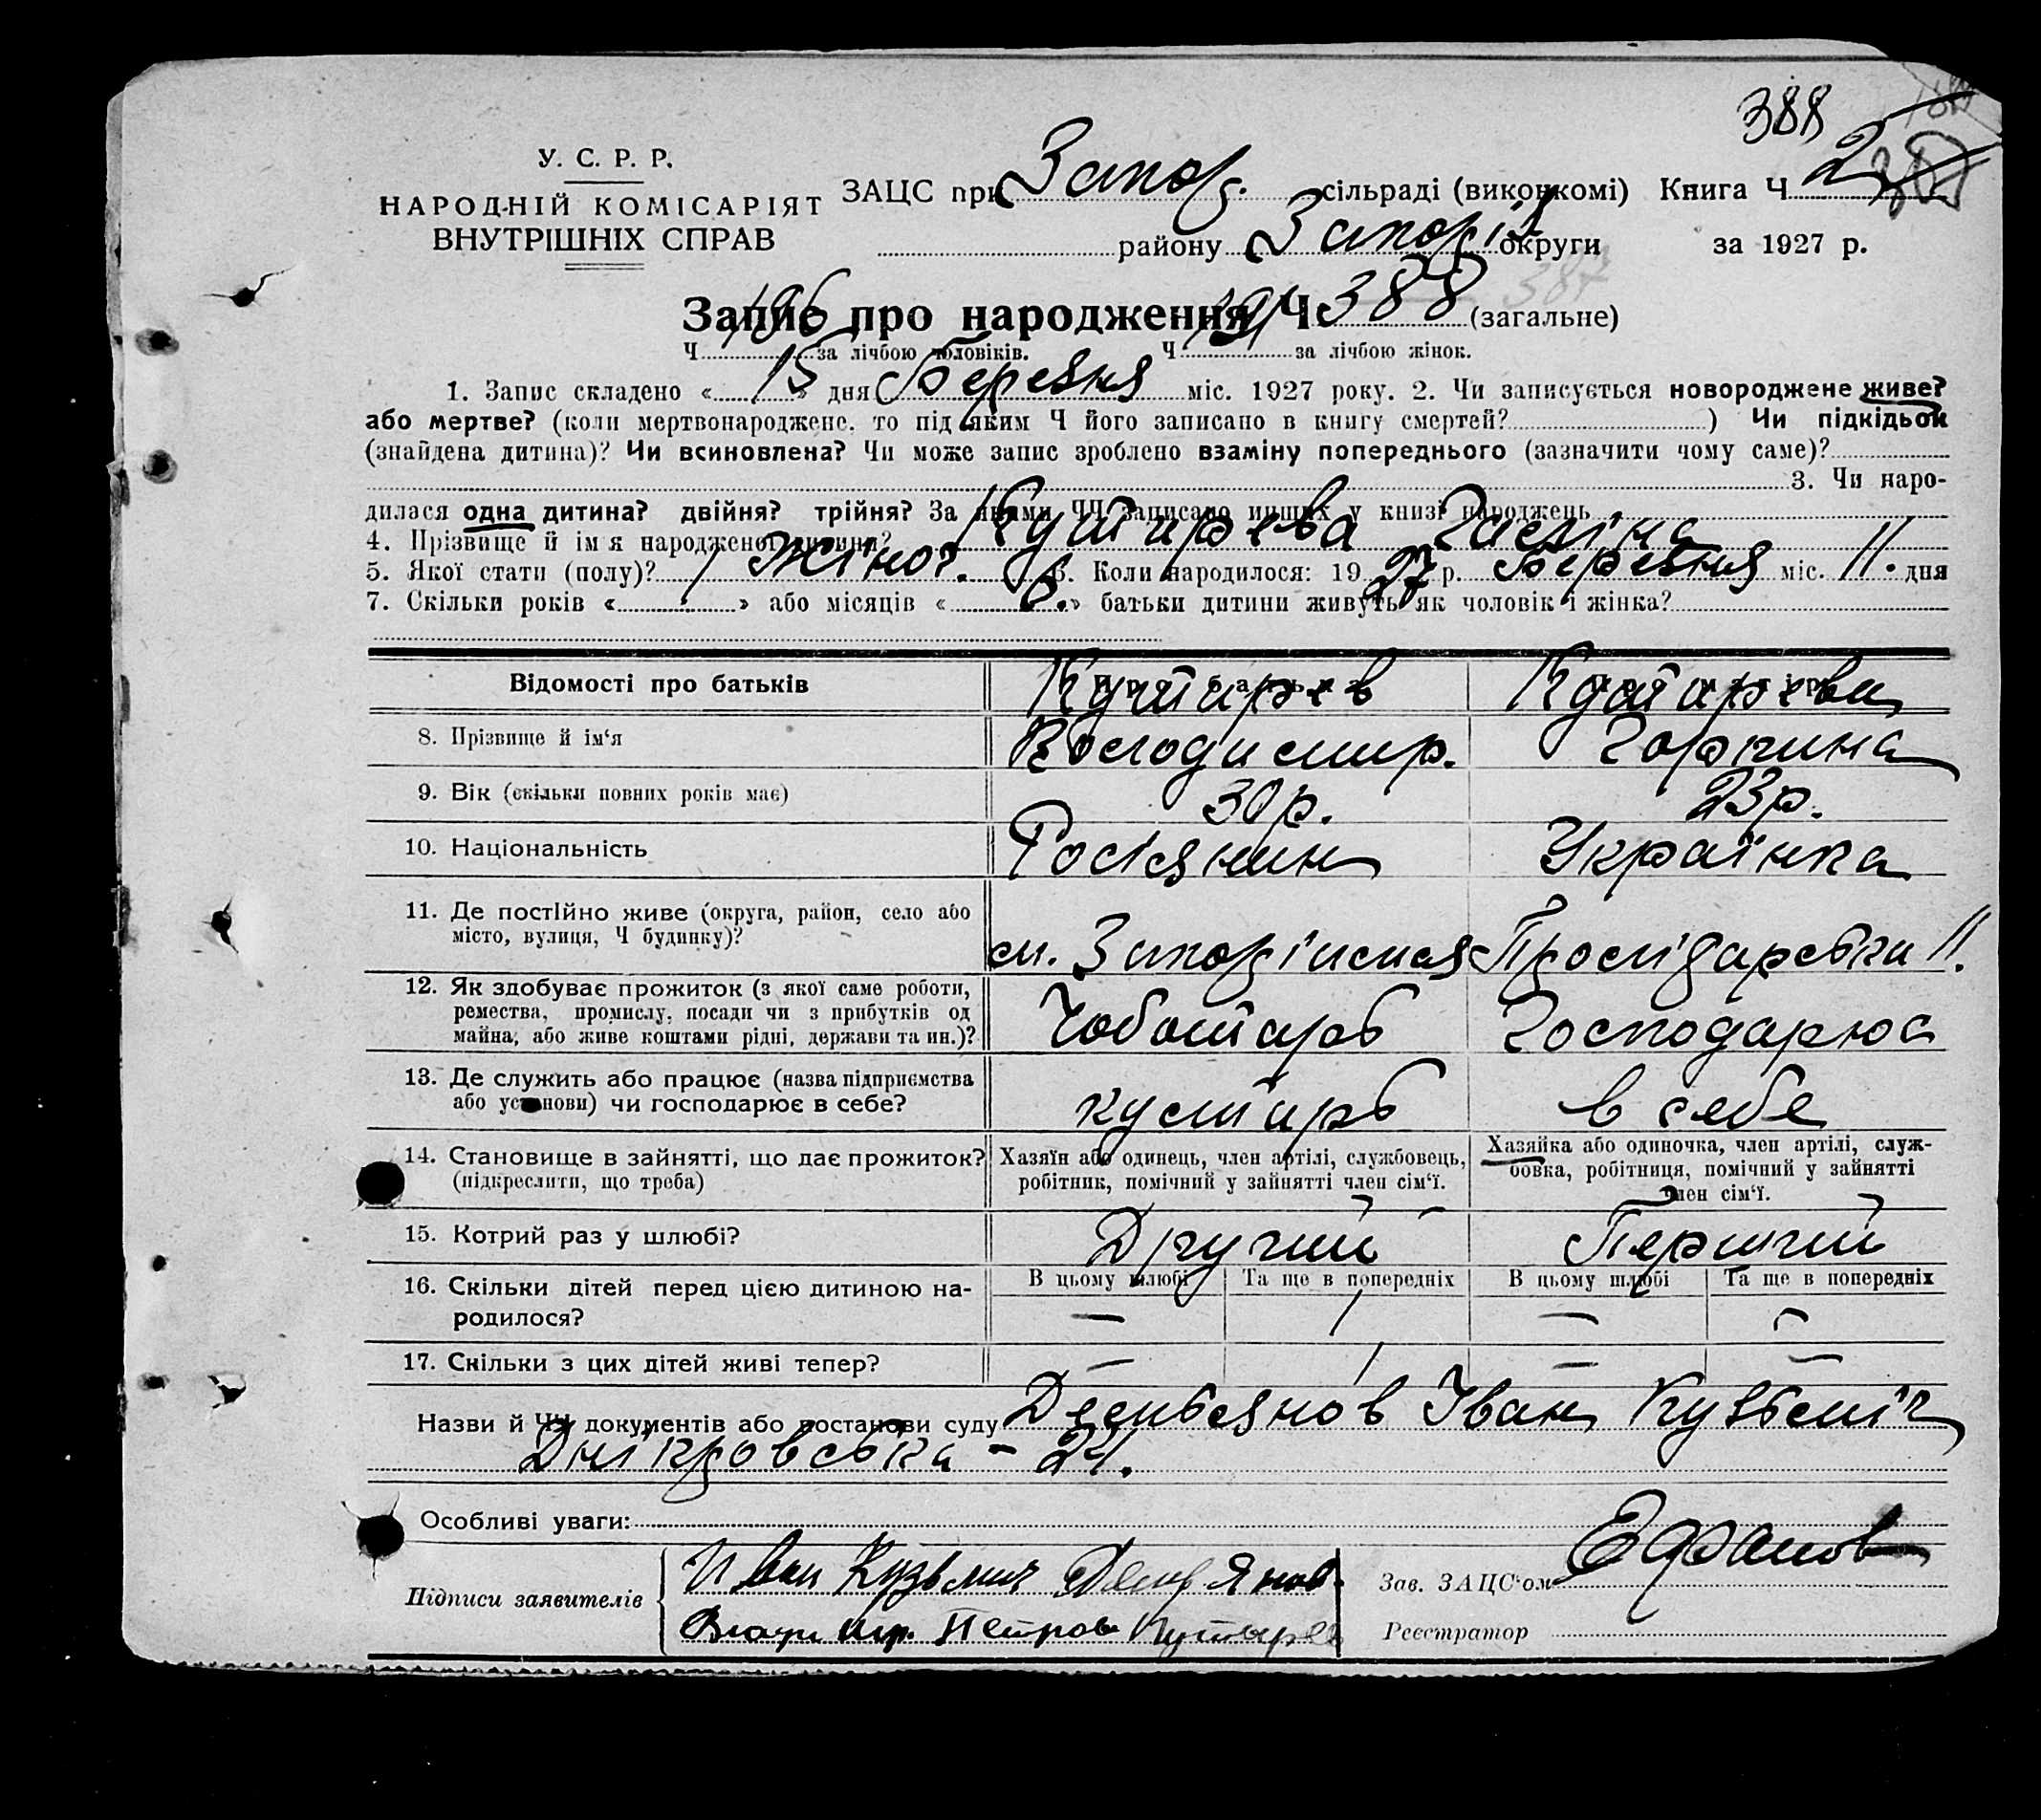 388
У. С. Р. Р.
НАРОДНІЙ КОМІСАРІЯТ
ВНУТРІШНІХ СПРАВ
ЗАЦС при Запор. сільраді (виконкомі) Книга Ч 2
району Запоріз округи за 1927 р.
387
Запис про народження Ч. 388 (загальне)
Ч 196 за лічбою чоловіків. Ч 191 за лічбою жінок.
1. Запис складено « 15 » дня Березня міс. 1927 року. 2. Чи записується новороджене живе?
або мертве? (коли мертвонароджене, то під яким Ч його записано в книгу смертей? ) Чи підкідьок
(знайдена дитина)? Чи всиновлена? Чи може запис зроблено взаміну попереднього (зазначити чому саме)?
3. Чи наро-
дилася одна дитина? двійня? трійня? За якими ЧЧ записано инших у книзі народжень
4. Прізвище й ім'я народженої дитини? Кутирева Галіна
5. Якої стати (полу)? Жіноч. 6. Коли народилося: 1927 р. Березня міс. 11. дня
7. Скільки років « » або місяців « » батьки дитини живуть як чоловік і жінка?
Відомості про батьків Кутирев Кутирева
8. Прізвище й ім'я Володимир. Горпина
9. Вік (скільки повних років має) 30 р. 23 р.
10. Національність Росіянин Українка
11. Де постійно живе (округа, район, село або
місто, вулиця, Ч будинку)? 11.
12. Як здобуває прожиток (з якої саме роботи,
ремества, промислу, посади чи з прибутків од
майна, або живе коштами рідні, держави та ин.)? Чоботарь Господарює
13. Де служить або працює (назва підприємства
або установи) чи господарює в себе? кустарь в себе
14. Становище в зайнятті, що дає прожиток?
(підкреслити, що треба)
Хазяїн або одинець, член артілі, службовець,
робітник, помічний у зайнятті член сім'ї.
Хазяйка або одиночка, член артілі, служ-
бовка, робітниця, помічний у зайнятті
член сім'ї.
15. Котрий раз у шлюбі? Другий Перший
16. Скільки дітей перед цією дитиною на-
родилося?
В цьому шлюбі Та ще в попередніх В цьому шлюбі Та ще в попередніх
— 1 — —
17. Скільки з цих дітей живі тепер? — 1 — —
Назви й ЧЧ документів або постанови суду Демьянов Іван Кузьміч
Дніпровська - 24.
Особливі уваги:
Підписи заявителів
Иван Кузьмич Демьянов
Петров Кутырев
Зав. ЗАЦС'ом
Реєстратор